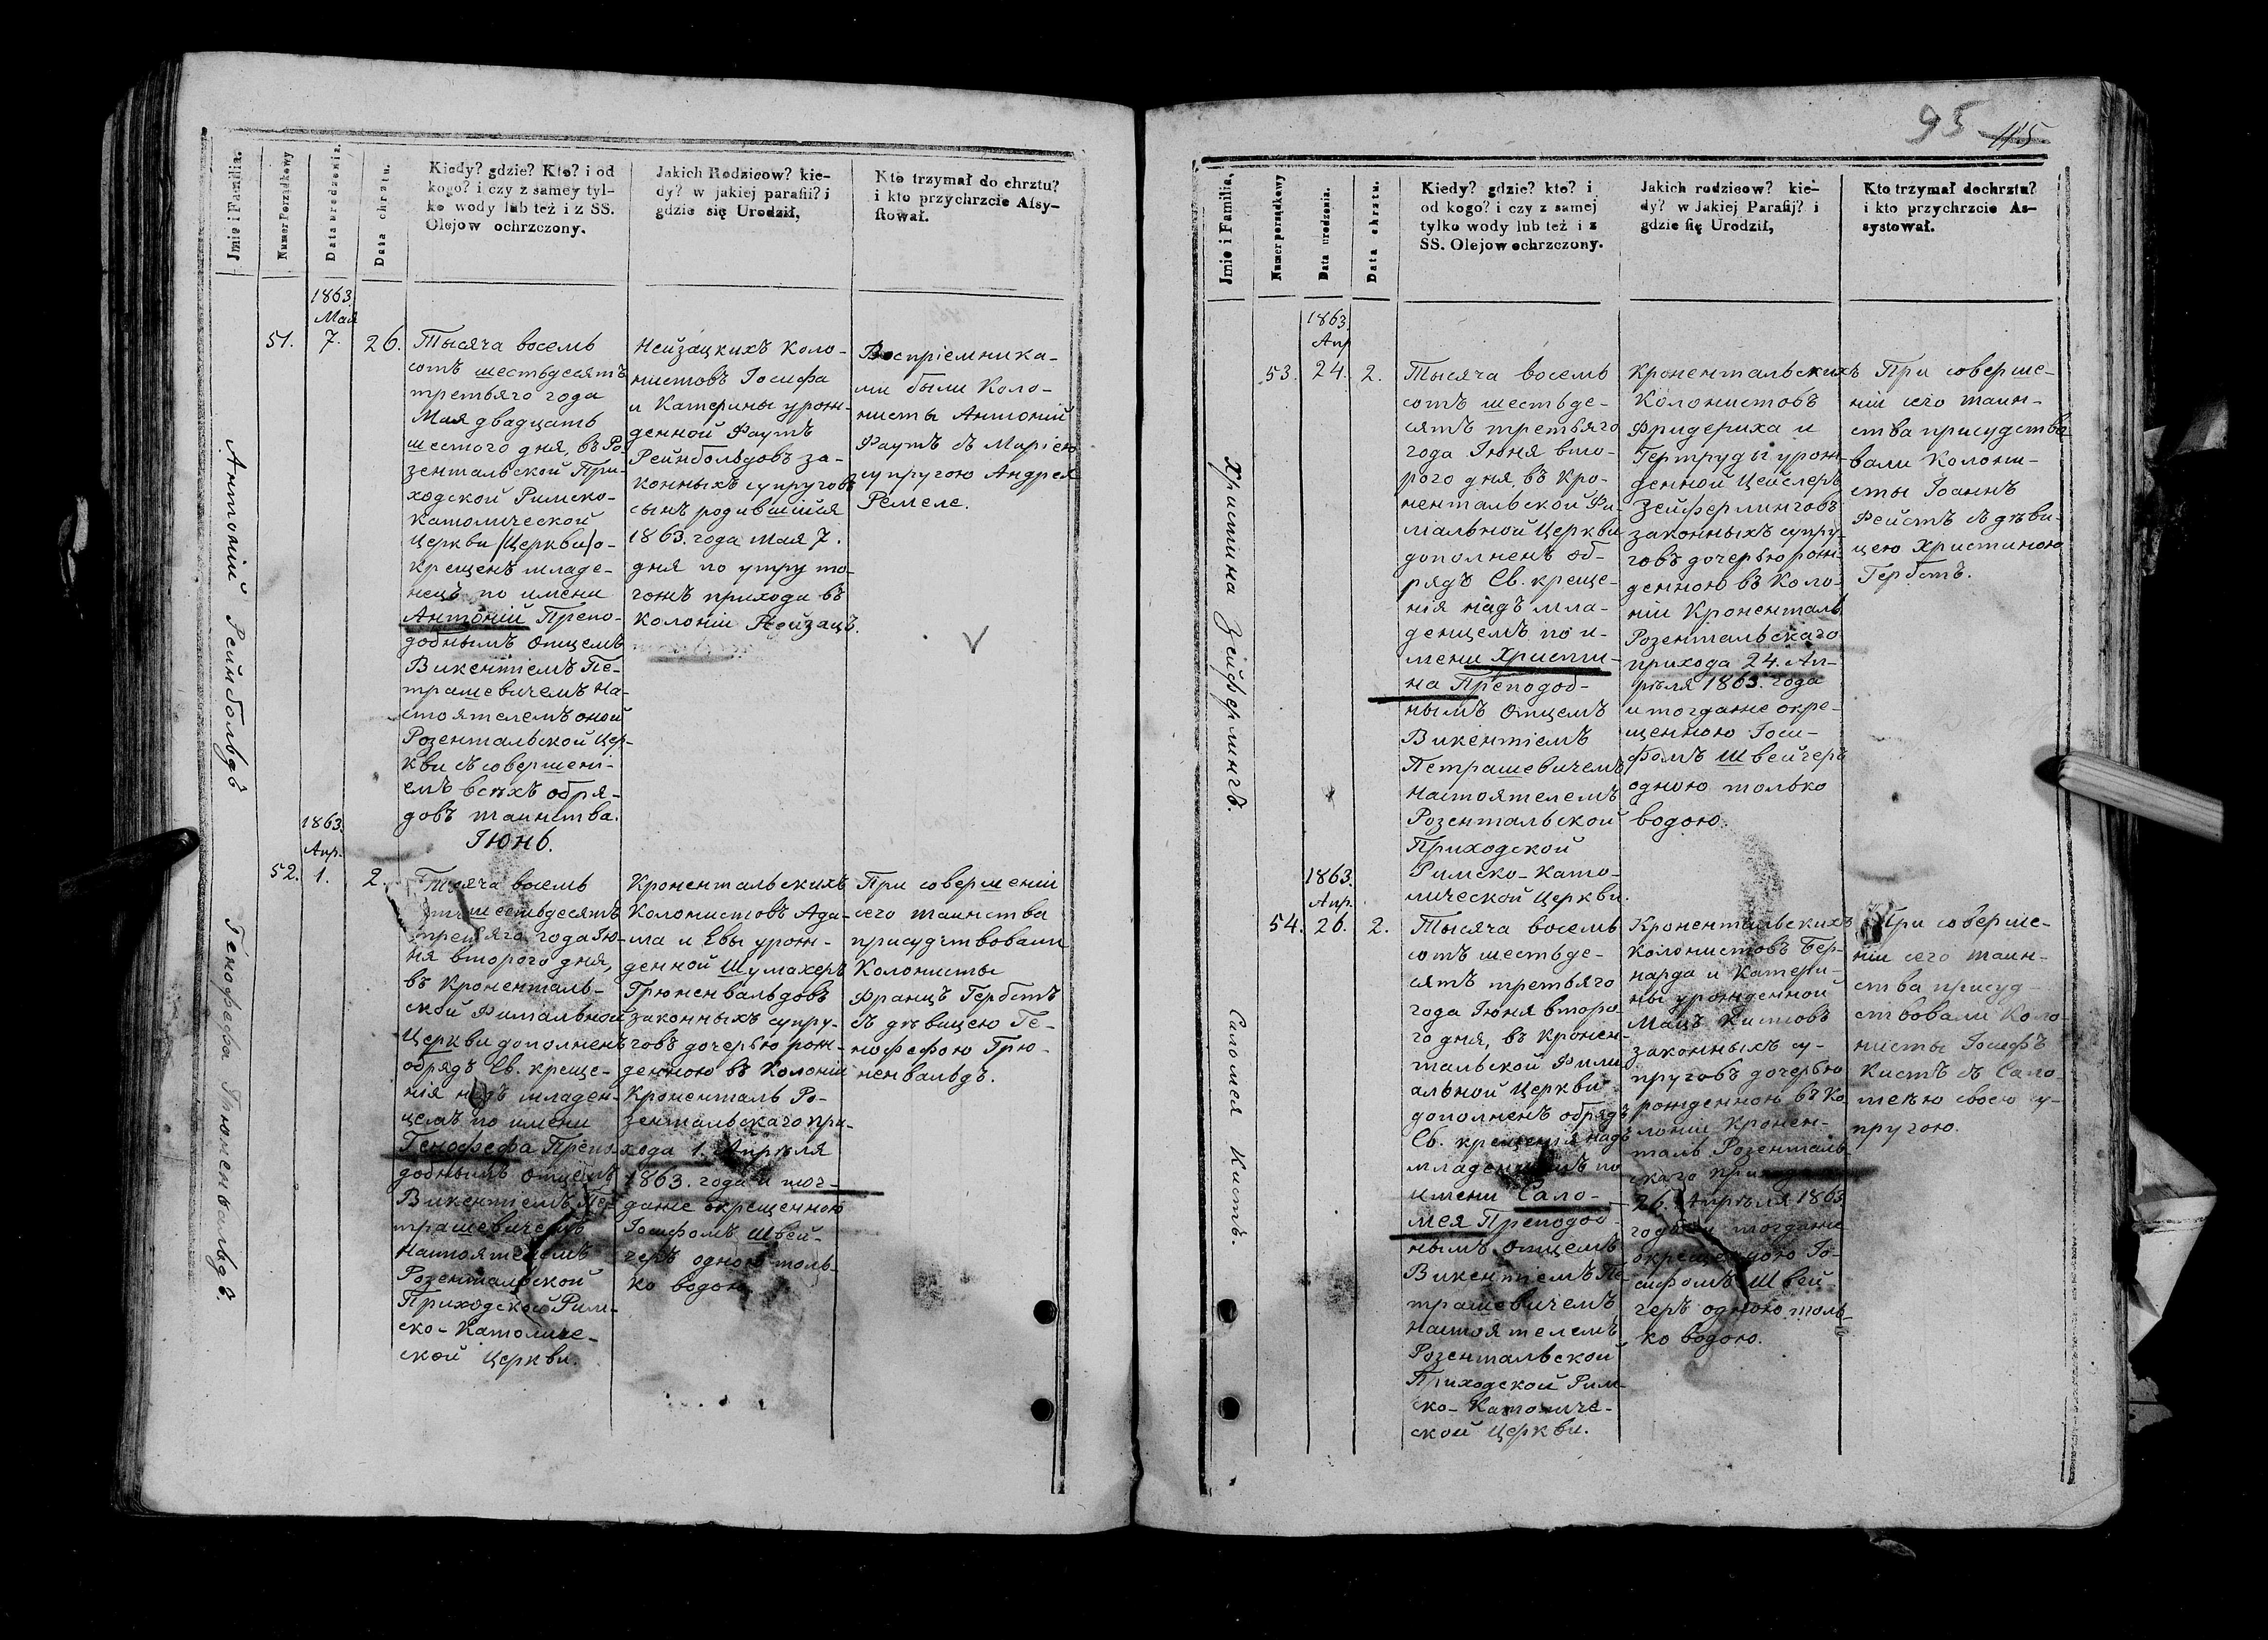 95 115
Jmie i Familia.
Numer Porządkowy
Data urodzenia.
Data chrztu.
Kiedy? gdzie? Kto? i od
kogo? i czy z samey tyl-
ko wody lub też i z SS.
Olejow ochrzczony.
Jakich Rodzicow? kie-
dy? w jakiej parafii? i
gdzie się Urodził,
Kto trzymał do chrztu?
i kto przychrzcie Afsy-
ftował.
Антоній Рейнбольдъ
1863.
Мая
51. 7. 26.
Тысяча восемь
сотъ шестьдесятъ
третьяго года
Мая двадцать
шестого дня, въ Ро
зентальской При-
ходской Римско-
Католической
Церкви /Церкви/ о-
крещенъ младе-
нецъ по имени
Антоній Препо-
добнымъ Отцемъ
Викентіемъ Пе-
трашевичемъ На-
стоятелемъ оной
Розентальской Цер-
кви съ совершені-
емъ всѣхъ обря-
довъ таинства.
Нейзацкихъ Коло-
нистовъ Іосифа
и Катерины урож-
денной Фаутъ
Рейнбольдовъ за-
конныхъ супруговъ
сынъ родившійся
1863. года Мая 7.
дня по утру то-
гожъ прихода въ
Колоніи Нейзацъ.
Воспріемника-
ми были Коло-
нисты Антоній
Фаутъ съ Маріею
супругою Андрея
Ремеле.
Іюнь.
Генофефа Грюненвальдъ.
1863.
Апр.
52. 1. 2.
Тысяча восемь
шестьдесятъ
третьяго года Ію-
ня второго дня,
въ Кроненталь-
ской Филіальной
Церкви дополненъ
обрядъ Св. креще-
нія надъ младен-
цемъ по имени
Генофефа Препо-
добнымъ Отцемъ
Викентіемъ Пе-
трашевичемъ
Настоятелемъ
Розентальской
Приходской Рим-
ско-Католиче-
ской Церкви.
Кронентальскихъ
Колонистовъ Ада-
ма и Евы урож-
денной Шумахеръ
Грюненвальдовъ
законныхъ супру-
говъ дочерью рож-
денною въ Колоніи
Кроненталь Ро-
зентальскаго при-
хода 1. Апрѣля
1863. года и тог-
даже окрещенною
Іосифомъ Швей-
черъ одною толь-
ко водою
При совершеніи
сего таинства
присудствовали
Колонисты
Францъ Гербстъ
съ дѣвицею Ге-
нофефою Грю-
ненвальдъ.
Jmie i Familia.
Numer porządkowy
Data urodzenia.
Data chrztu.
Kiedy? gdzie? kto? i
od kogo? i czy z samej
tylko wody lub też i z
SS. Olejow ochrzczony.
Jakich rodzicow? kie-
dy? w Jakiej Parafij? i
gdzie fię Urodził,
Kto trzymał dochrztu?
i kto przychrzcie As-
systował.
Христина Зейферлингъ.
1863.
Апр
53. 24. 2.
Тысяча восемь
сотъ шестьде-
сятъ третьяго
года Іюня вто-
рого дня, въ Кро-
нентальской Фи-
ліальной Церкви
дополненъ об-
рядъ Св. креще-
нія надъ мла-
денцемъ по и-
мени Христи-
на Преподоб-
нымъ Отцемъ
Викентіемъ
Петрашевичемъ
Настоятелемъ
Розентальской
Приходской
Римско-Като-
лической Церкви.
Кронентальскихъ
Колонистовъ
Фридериха и
Гертруды урож-
денной Цейслеръ
Зейферлинговъ
законныхъ супру-
говъ дочерью рож-
денною въ Коло-
ніи Кроненталь
Розентальскаго
прихода 24. Ап-
рѣля 1863. года
и тогдаже окре-
щенною Іоси-
фомъ Швейчеръ
одною только
водою.
При соверше-
ніи сего таин-
ства присудство-
вали Колони-
сты Іоаннъ
Фейстъ съ дѣви-
цею Христиною
Гербстъ.
Саломея Кистъ.
1863.
Апр.
54. 26. 2.
Тысяча восемь
сотъ шестьде-
сятъ третьяго
года Іюня второ-
го дня, въ Кронен-
тальской Фили
альной Церкви
дополненъ обрядъ
Св. крещенія надъ
младенцемъ по
имени Сало-
мея Преподоб-
нымъ Отцемъ
Викентіемъ Пе-
трашевичемъ
Настоятелемъ
Розентальской
Приходской Рим-
ско-Католиче-
ской Церкви.
Кронентальскихъ
Колонистовъ Бер-
нарда и Катери-
ны урожденной
Мацъ Кистовъ
законныхъ су-
пруговъ дочерью
рожденною въ Ко
лоніи Кронен-
таль Розенталь
скаго прихода
26. Апрѣля 1863
года и тогдаже
окрещенною Іо-
сифомъ Швей-
черъ одною толь-
ко водою.
При соверше-
ніи сего таин-
ства присуд-
ствовали Коло-
нисты Іосифъ
Кистъ съ Сало
меѣю своею су-
пругою.